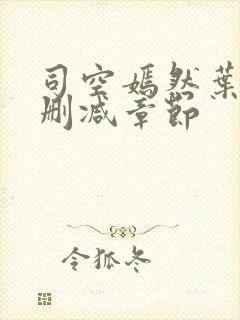 司空嫣然葉
删减章节
令狐冬